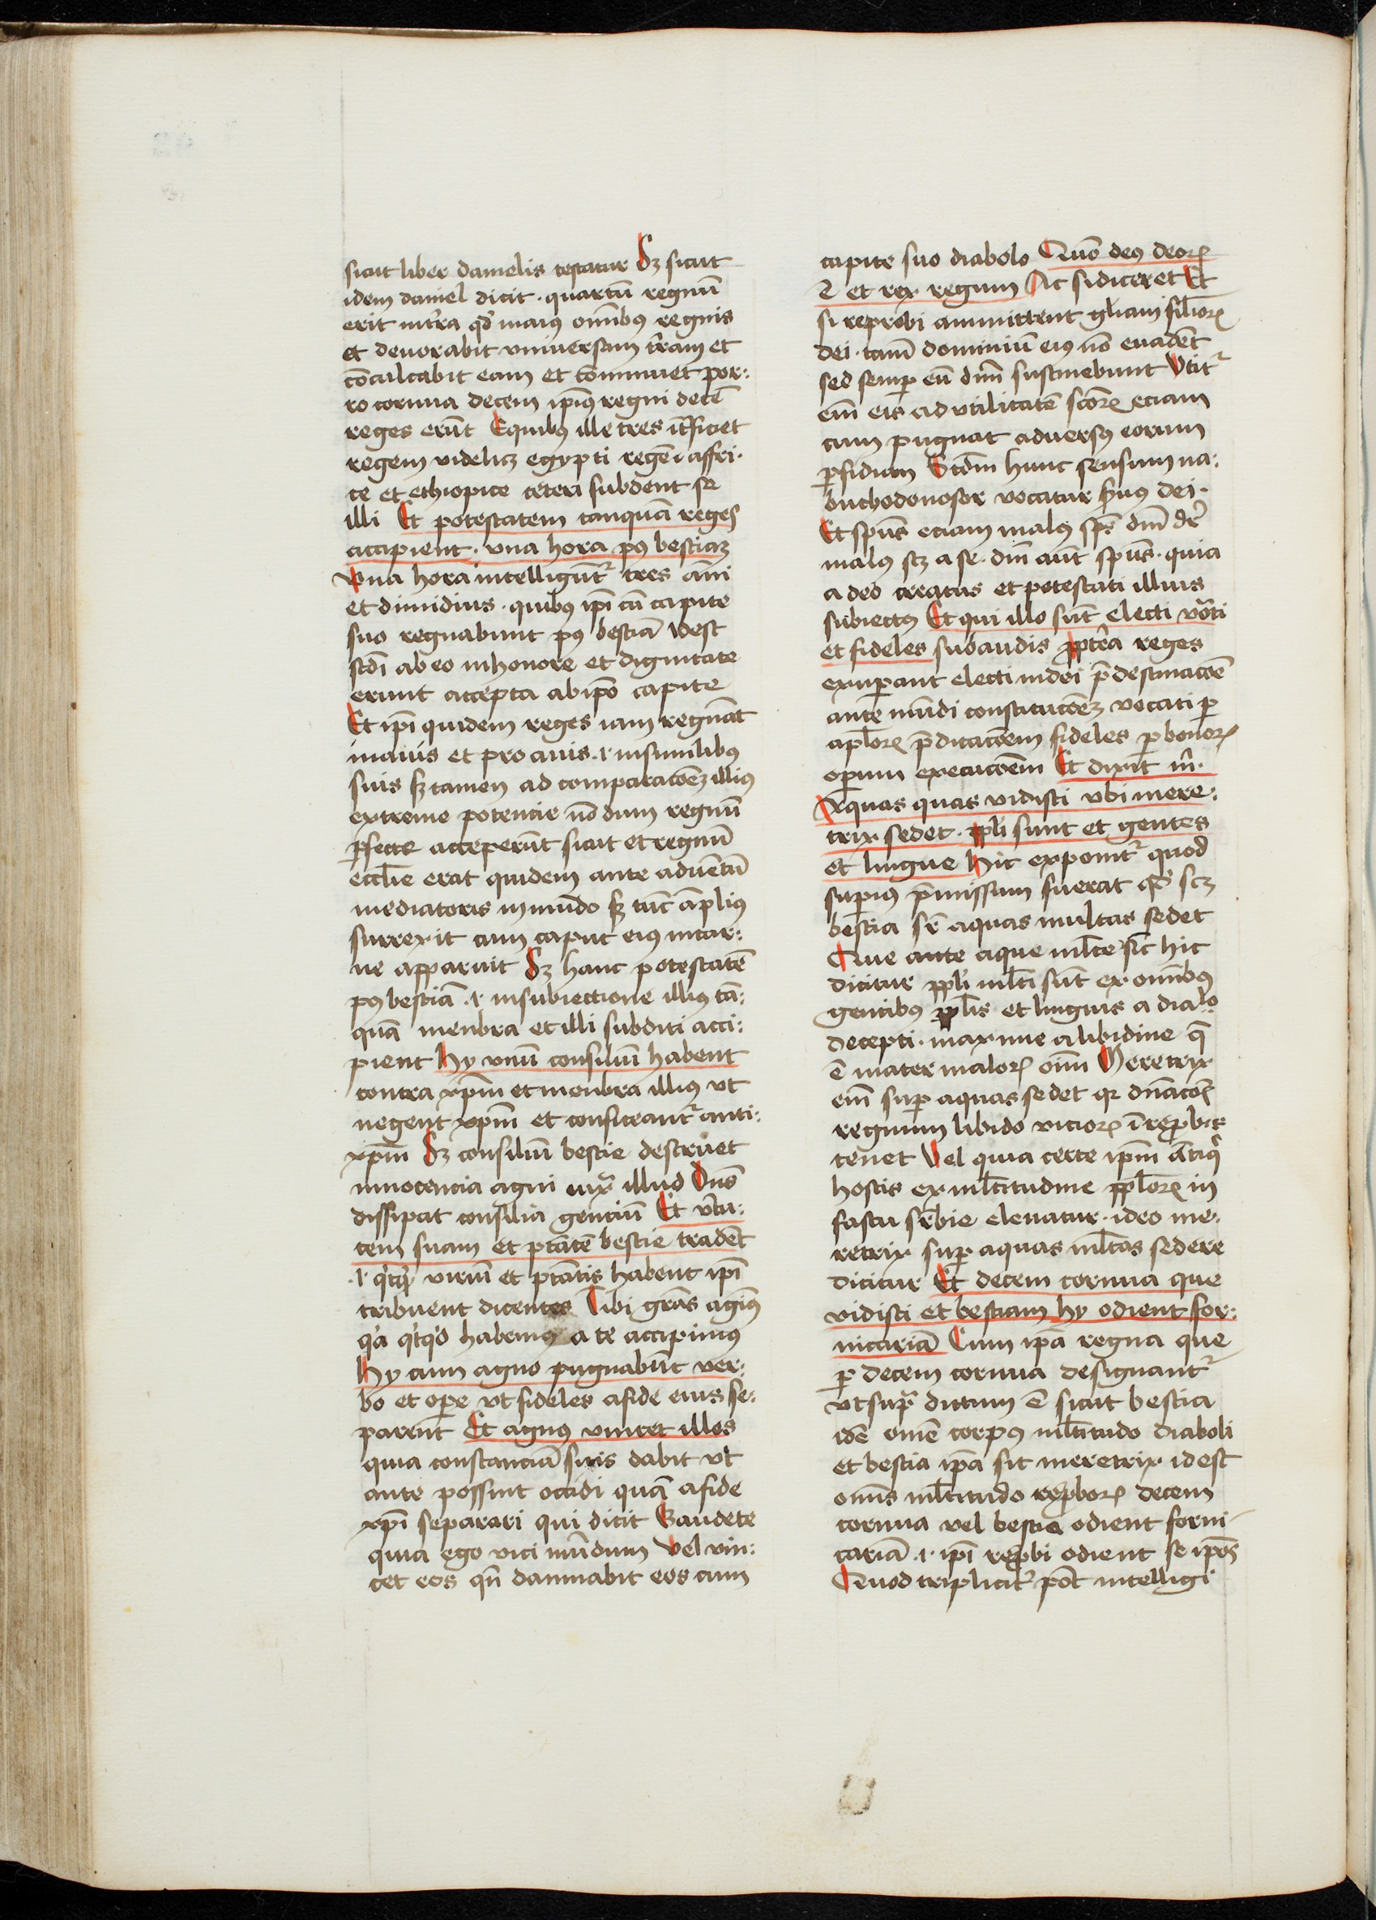 sicut liber danielis testatur Sz sicut
idem daniel dicit · quartū regnū
erit in tr̄a qd̕ maius om̄ibus regnis
et deuorabit vniuersam tr̄am et
cōculcabit eam et cōminuet por:
ro cornua decem ip̄ius regni decē
reges erūt Equibus ille tres īt̄ficiet
regem videlicz egypti regē affri·
ce et ethiopice ceteri subdent se
illi Et potestatem tanquā reges
accipient · vna hora p9 bestiaz
Vna hora intelligūt᷑ tres āni
et dimidius · quibus ip̄i cū capite
suo regnabunt p9 bestiā id est
scd̄i ab eo in honore et dignitate
erunt accepta ab ip̄o capite
Et ip̄i quidem reges iam regnāt
in auis et pro auis ·i· in similibus
suis sz tamen ad comparacōez illius
extreme potencie nōdum regnū
ꝑfecte acceperūt sicut et regnū
eccl̄ie erat quidem ante aduētū
mediatoris in mundo sz tūc āplius
surrexit cum caput eius in car:
ne apparuit Sz hanc potestatē
p9 bestiā ·i· in subiectione illius tā:
quā menbra et illi subditi acci:
pient Hy vnū consiliū habent
contra xp̄m et menbra illius vt
negent xp̄m et confiteant᷑ anti:
xp̄m Sz consiliū bestie destruet
innocencia agni iux᷑ illud Dn̄s
dissipat consilia genciū Et v̄tu:
tem suam et ptātē bestie tradēt
·i· qͥcqͥd viriū et ptātis habent ip̄i
tribuent dicentes Tibi gr̄as agim9
qͥa qͥcqͥd habemus a te accipimus
Hy cum agno pugnabūt ver:
bo et oꝑe vt fideles a fide eius se:
parent Et agnus vincet illos
quia constanciā suis dabit vt
ante possint occidi quā a fide
xp̄i separari qui dicit Gaudete
quia ego vici mūdum Vel vin:
cet eos qn̄ damnabit eos cum
capite suo diabolo Quō deus deorꝝ
ē et rex regum Ac si diceret Et
si reprobi ammittent gl̄iam filiorꝝ
dei · tam̄ dominiū eius nō euadēt
sed semꝑ eū dn̄m sustinebunt Vtit᷑
em̄ eis ad vtilitatē sc̄orꝝ eciam
cum pugnat aduersus eorum
ꝑfidiam Scdm̄ hunc sensum na:
buchodonosor vocatur s̄uus dei ·
Et sp̄us eciam malus sp̄s dn̄i dr̄
malus scz a se · dn̄i aūt sp̄us · quia
a deo creatus et potestati illius
subiectus Et qui cū illo sūt electi vocati
et fideles subaudis ꝓpt̄ea reges
exuꝑant electi in dei p̄destinacōe
ante mūdi constitucōez vocati ꝑ
apl̄orꝝ p̄dicacōem fideles ꝑ bonorꝝ
oꝑum execucōem Et dixit m̄ ·
Aquas quas vidisti vbi mere:
trix sedet · ppl̄i sunt et gentes
et lingue Hic exponit᷑ quod
suꝑius p̄missum fuerat qd̕ scz
bestia sr̄ aquas multas sedet
Que ante aque ml̄te sic hic
dicitur ppl̄i ml̄ti sūt ex om̄ibus
gentibus ppl̄is et linguis a dia⸍lo
decepti · maxime a libidine q̄
ē mater malorꝝ oīm Meretrix
em̄ suꝑ aquas sedet qꝛ dn̄acōis
regnum libido viciorꝝ ī reꝓbis
tenet Vel quia certe ip̄m ātiqͥ
hostis ex ml̄titudine ppl̄orꝝ in
fastu suꝑbie eleuatur · ideo me·
retrix suꝑ aquas ml̄tas sedere
dicitur Et decem cornua que
vidisti et bestiam hy odient for:
nicariā Cum ip̄a regna que
ꝑ decem cornua designant᷑
vt supͣ dictum ē sicut bestia
idē om̄e corpus ml̄titudo diaboli
et bestia ip̄a sit meretrix id est
om̄s ml̄titudo reꝓborꝝ decem
cornua vel bestia odient forni
cariā ·i· ip̄i reꝓbi odient se ip̄os
Quod triplicit᷑ pōt intelligi